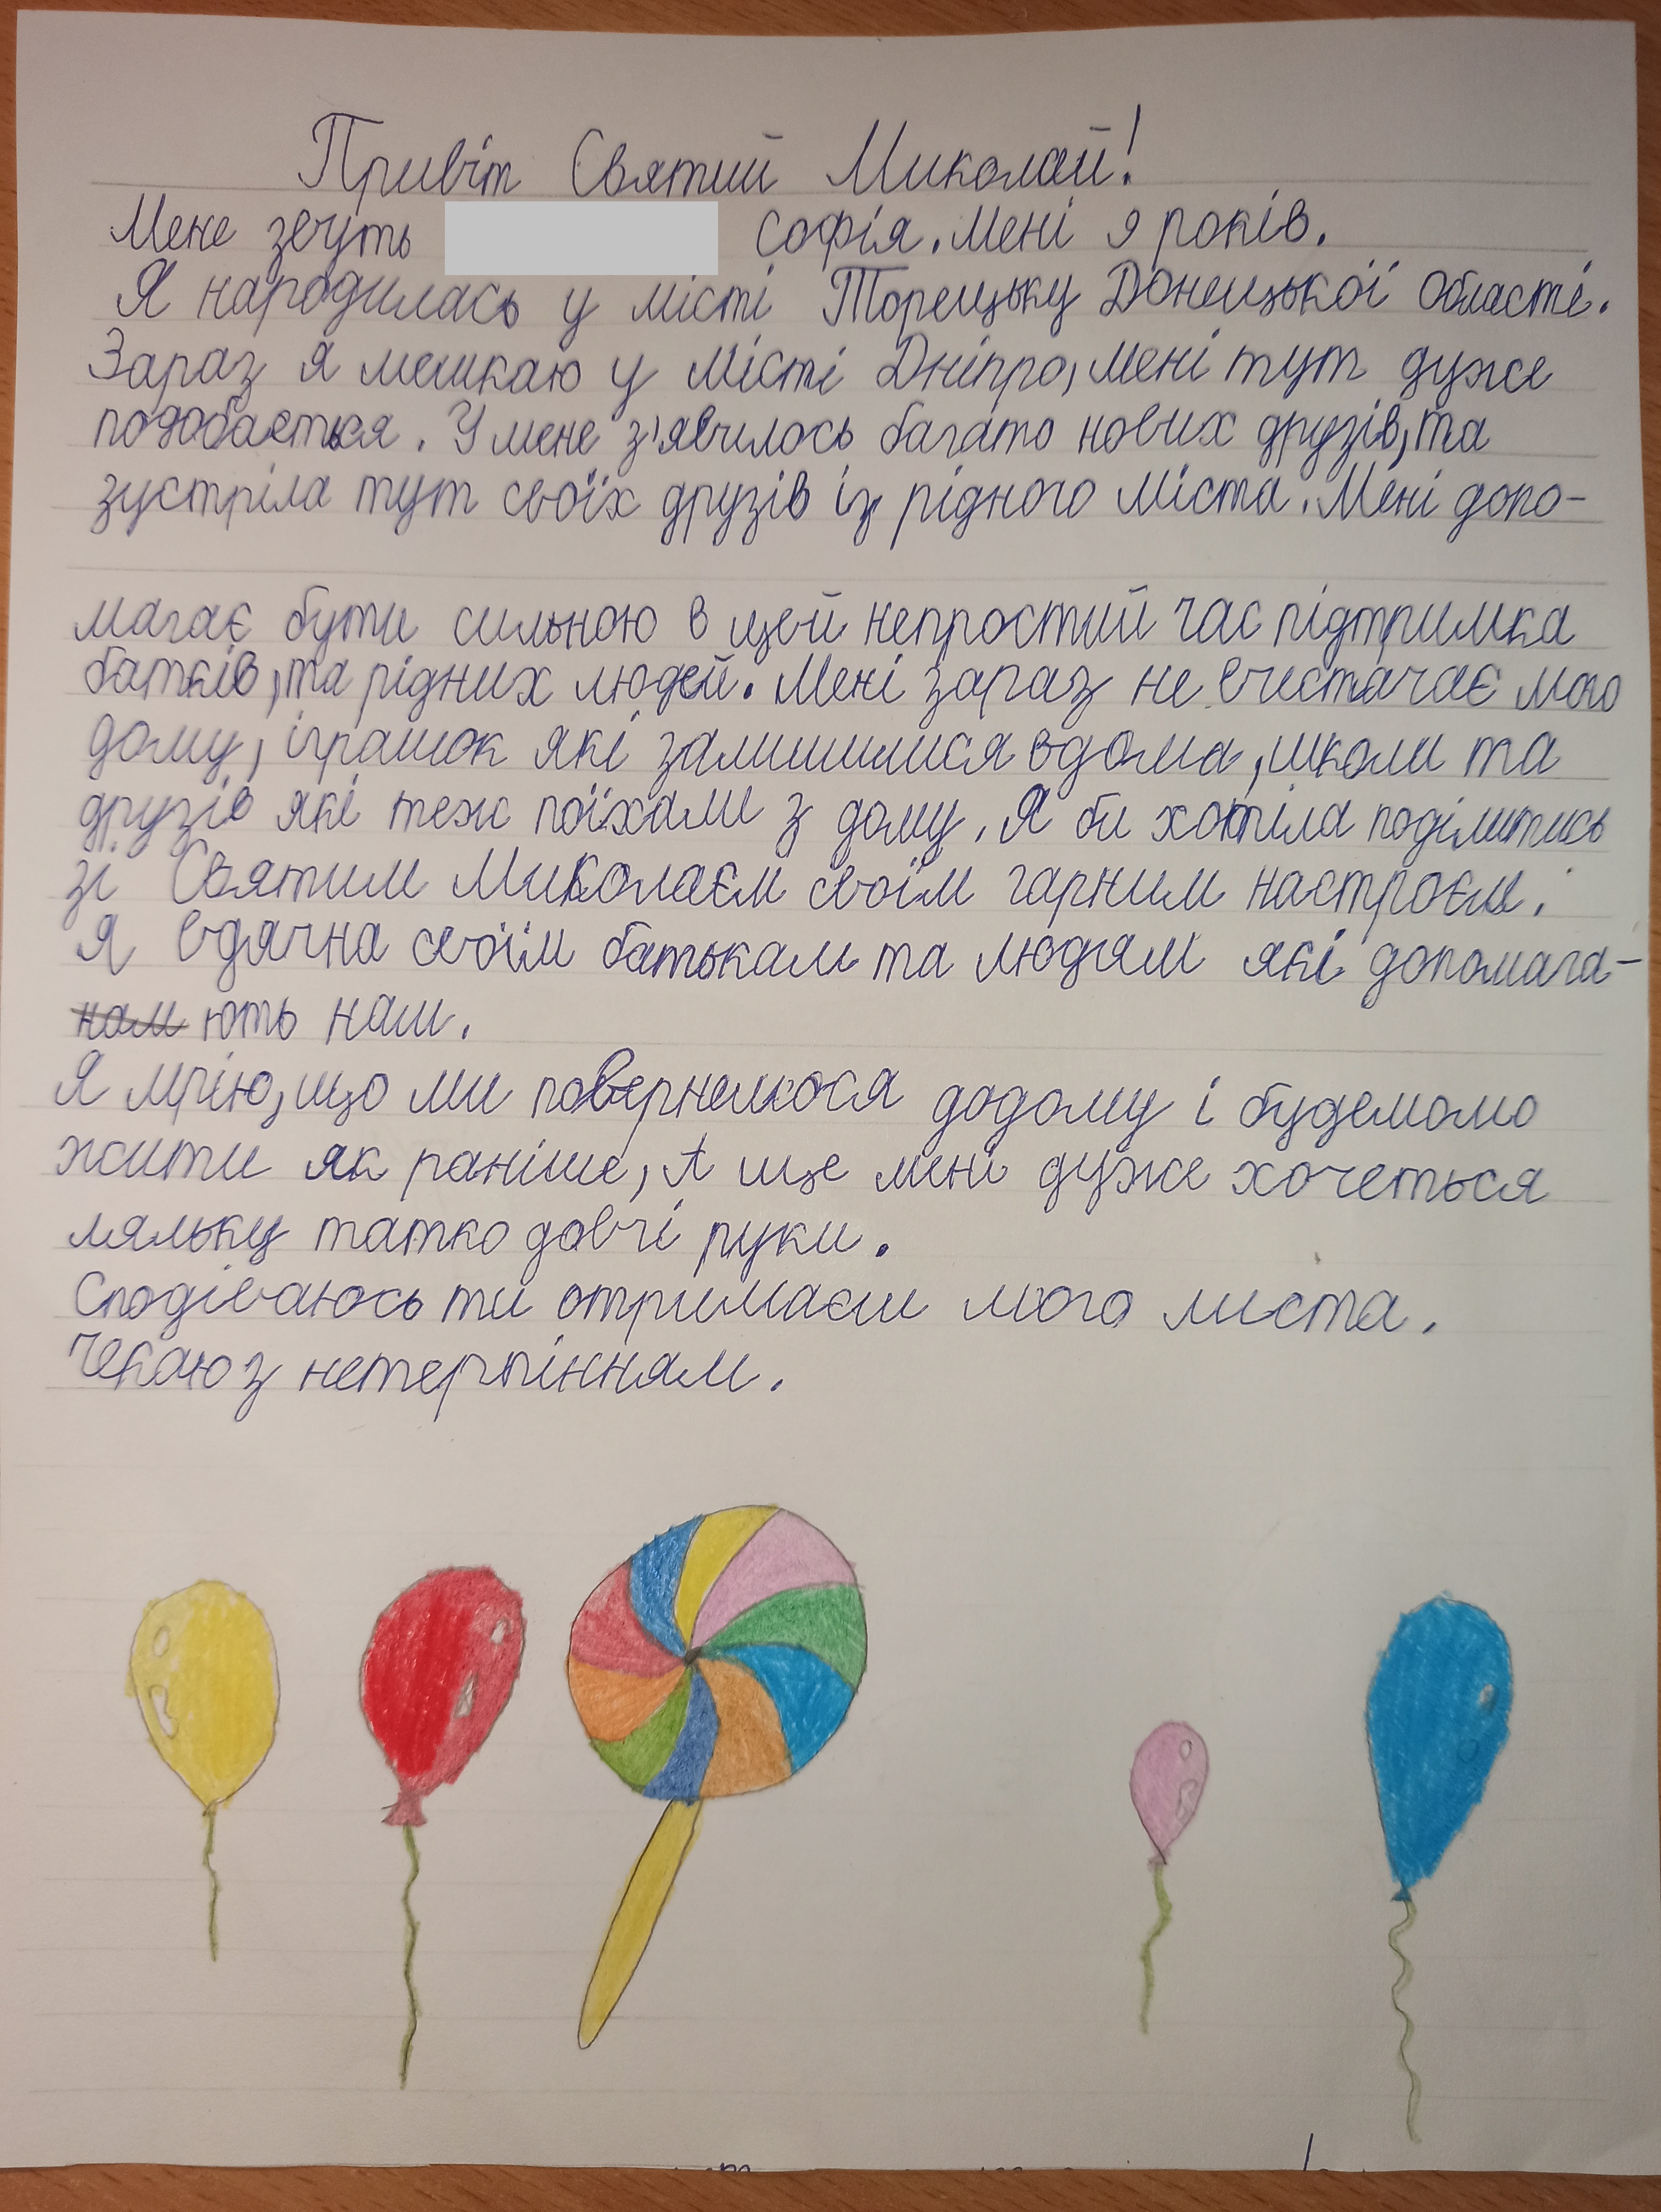 Привіт Святий Миколай!
Мене звуть Софія. Мені 9 років.
Я народилась у місті Торецьку Донецької області.
Зараз я мешкаю у місті Дніпро, мені тут дуже
подобається. У мене з'явилось багато нових друзів, та
зустріла тут своїх друзів із рідного міста. Мені допо-
магає бути сильною в цей непростий час підтримка
батків, та рідних людей. Мені зараз не вистачає мого
дому, іграшок які залишилися вдома, школи та
друзів які теж поїхали з дому. Я би хотіла поділитись
зі Святим Миколаєм своїм гарним настроєм.
Я вдячна своїм батькам та людям які допомага-
нам ють нам.
Я мрію, що ми повернемося додому і будемомо
жити як раніше, А ще мені дуже хочеться
ляльку татко довчі руки.
Сподіваюсь ти отримаєш мого листа.
Чекаю з нетерпінням.